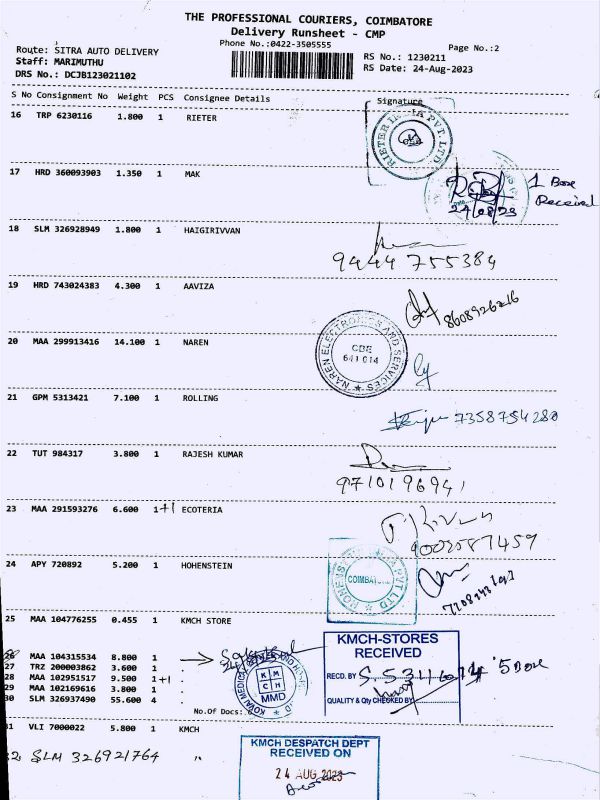 THE PROFESSIONAL COURIERS, COIMBATORE
Delivery Runsheet - CMP
Phone No.:0422-3505555
Page No.:2
Route: SITRA AUTO DELIVERY
Staff: MARIMUTHU
DRS No.: DCJB123021102
RS No.: 1230211
RS Date: 24-Aug-2023
S No Consignment No Weight PCS Consignee Details Signature
16 TRP 6230116 1.800 1 RIETER
RIETER INDIA PVT. LTD
17 HRD 360093903 1.350 1 MAK
24/08/23
1 Box
Received
18 SLM 326928949 1.800 1 HAIGIRIVVAN
9444 755384
19 HRD 743024383 4.300 1 AAVIZA
8608926216
20 MAA 299913416 14.100 1 NAREN
NAREN ELECTRONICS AND SERVICES
CBE
641 014
21 GPM 5313421 7.100 1 ROLLING
7358754280
22 TUT 984317 3.800 1 RAJESH KUMAR
23 MAA 291593276 6.600 1+1 ECOTERIA
24 APY 720892 5.200 1 HOHENSTEIN
COIMBATORE
25 MAA 104776255 0.455 1 KMCH STORE
26 MAA 104315534 8.800 1
27 TRZ 200003862 3.600 1
28 MAA 102951517 9.500 1+1
29 MAA 102169616 3.800 1
30 SLM 326937490 55.600 4
No.Of Docs:
K M
C H
MMD
KMCH-STORES
RECEIVED
RECD. BY
5 Box
QUALITY & Qty CHECKED BY
31 VLI 7000022 5.800 1 KMCH
32 SLM 326921764 "
KMCH DESPATCH DEPT
RECEIVED ON
24 AUG 2023